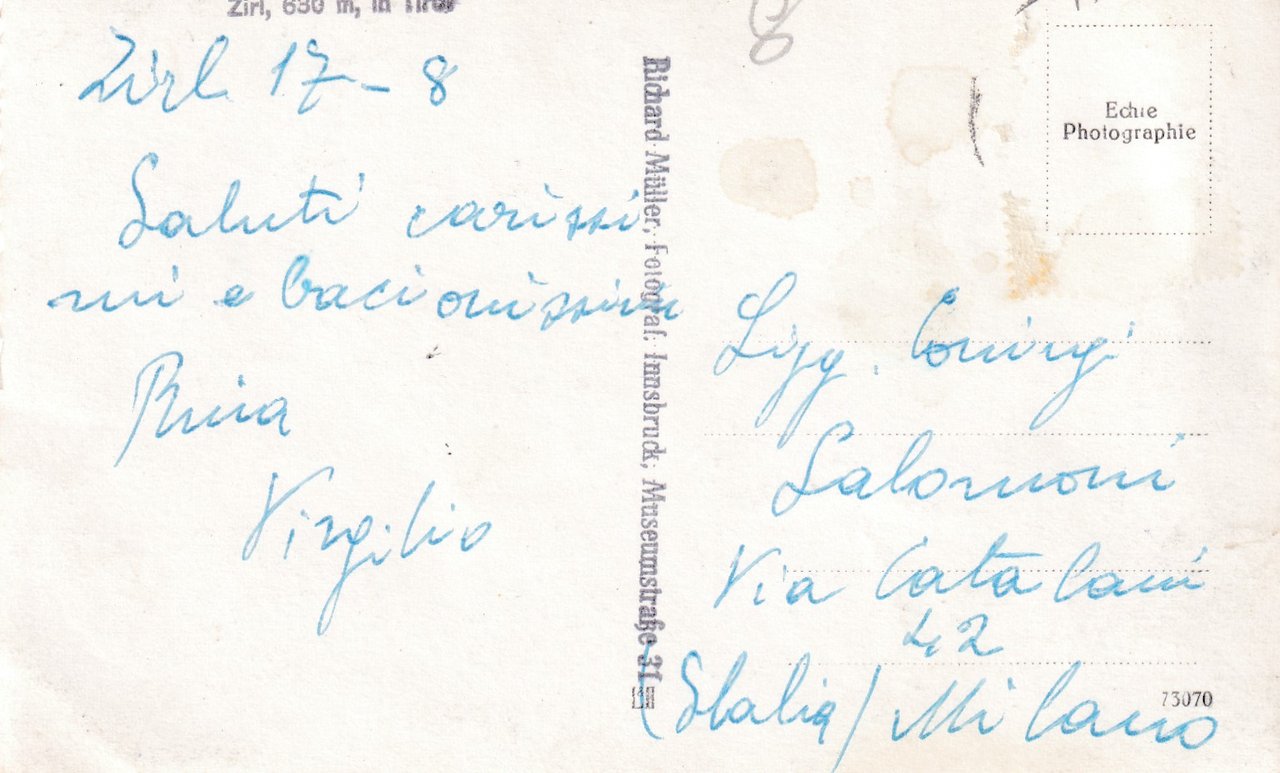 Zirl, 630 m, in Tirol
Zirl 17-8
Saluti carissi
mi e bacionissimi
Rina
Virgilio
8
Richard Müller, Fotograf, Innsbruck, Museumstraße 31
Echte
Photographie
Sigg. Coniugi
Salomoni
Via Catalani
42
(Italia) Milano
73070